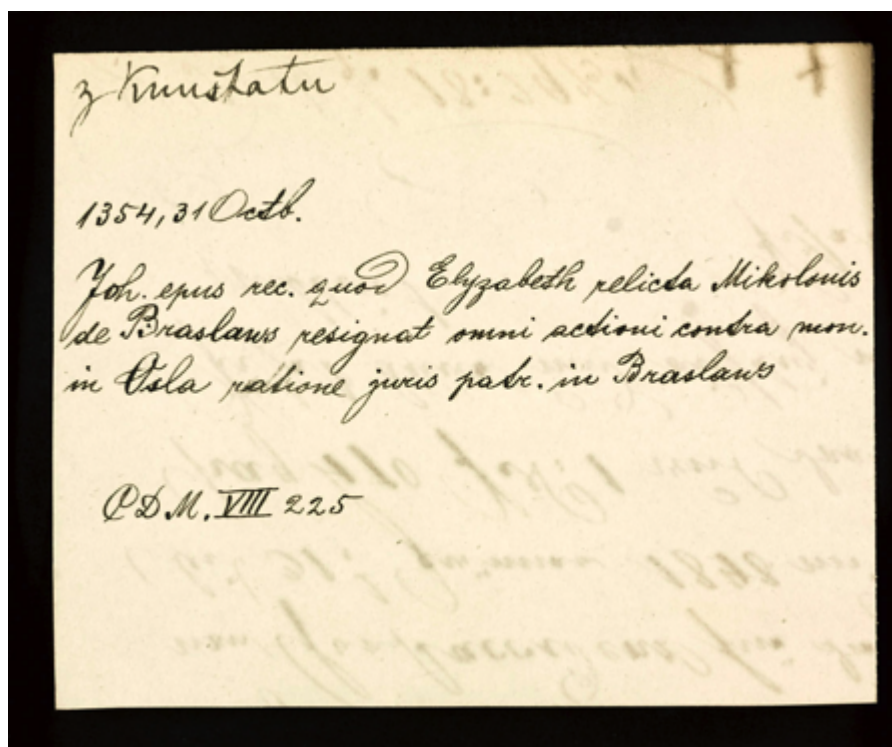 z Kunštatu
1354, 31 Octb.
Joh. epus rec. quod Elyzabeth relicta Mikolonis
de Braslaws resignat omni actioni contra mon.
in Osla ratione juris patr. in Braslaws
CDM. VIII 225